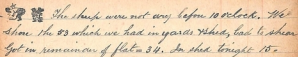 The sheep were not dry before 10 o'clock. We
shore the 83 which we had in yards & shed, bad to shear
Got in remainder of flat a 34. In shed tonight 150